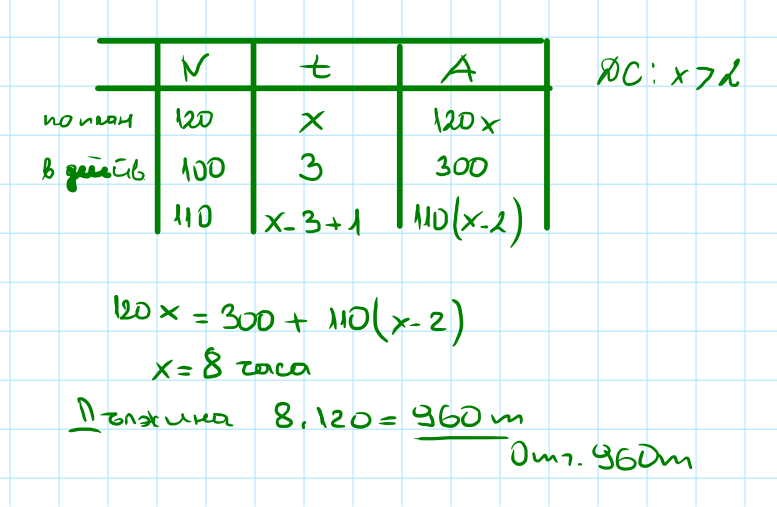 N t A ДС: x > 2
по план 120 x 120x
в действ 100 3 300
110 x - 3 + 1 110(x - 2)
120x = 300 + 110(x - 2)
x = 8 часа
Дължина 8.120 = 960 m
Отг. 960m